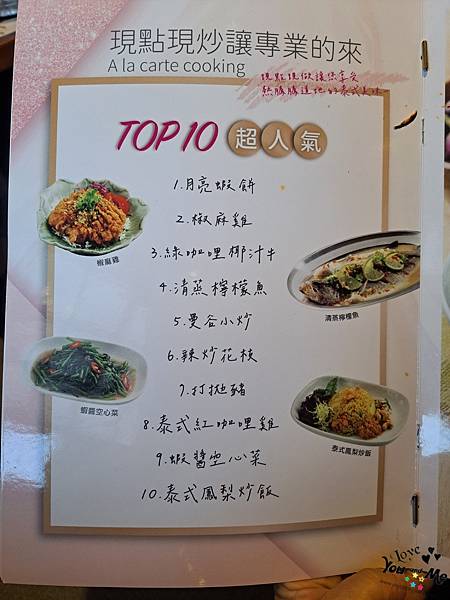 現點現炒讓專業的來
A la carte cooking
現點現做讓您享受
熱騰騰道地的泰式美味
TOP 10 超人氣
1.月亮蝦餅
2.椒麻雞
3.綠咖哩椰汁牛
4.清蒸檸檬魚
5.曼谷小炒
6.辣炒花枝
7.打拋豬
8.泰式紅咖哩雞
9.蝦醬空心菜
10.泰式鳳梨炒飯
椒麻雞
清蒸檸檬魚
蝦醬空心菜
泰式鳳梨炒飯
love
You and Me